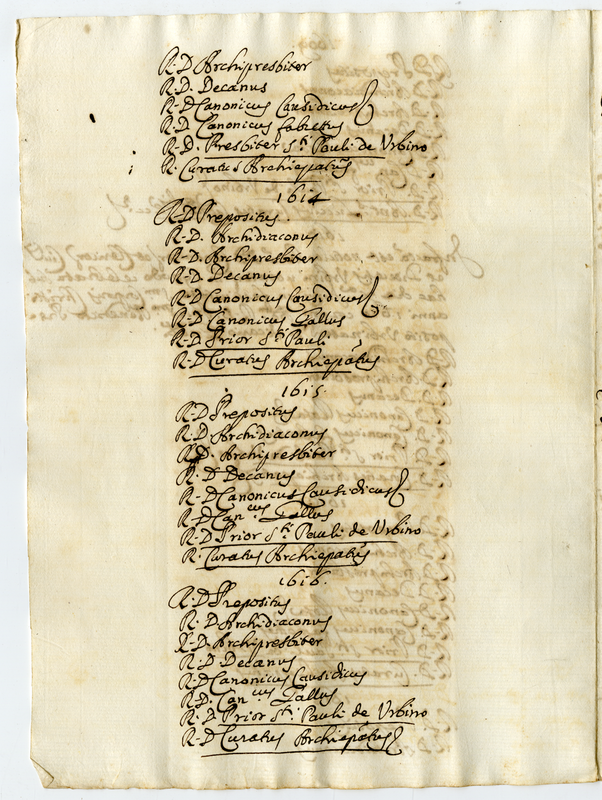 R. D Archipresbiter
R. D. Decanus
R. D Canonicus Causidicus
R. D Canonicus fabettus
R. D. Presbiter S.ti Pauli de Urbino
R. Curatus Archiepãtus
1614
R. D Prepositus.
R. D. Archidiaconus
R. D. Archipresbiter
R. D. Decanus
R. D Canonicus Causidicus
R. D Canonicus Gallus
R. D. Prior S.ti Pauli
R. D Curatus Archiepãtus
1615.
R. D Prepositus
R. D Archidiaconus
R. D. Archipresbiter
R. D Decanus
R. D Canonicus Causidicus
R. D Can.cus Gallus
R. D Prior S.ti Pauli de Urbino
R. Curatus Archiepãtus
1616.
R. D Prepositus
R. D Archidiaconus
R. D. Archipresbiter
R. D Decanus
R. D Canonicus Causidicus
R. D. Can.cus Gallus
R. D Prior S.ti Pauli de Urbino
R. D Curatus Archiepãtus